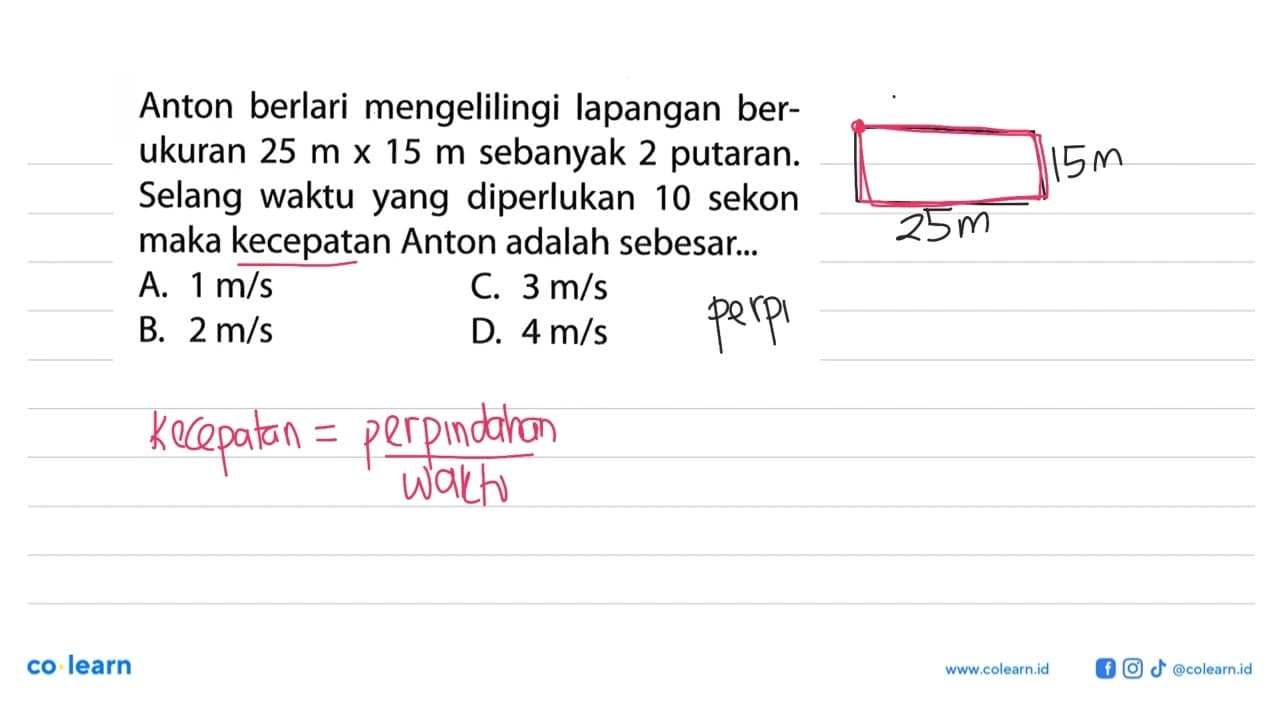 Anton berlari mengelilingi lapangan ber-
ukuran 25 m x 15 m sebanyak 2 putaran.
Selang waktu yang diperlukan 10 sekon
maka kecepatan Anton adalah sebesar...
A. 1 m/s C. 3 m/s
B. 2 m/s D. 4 m/s
15m
25m
perpi
kecepatan = perpindahan
waktu
co learn
www.colearn.id @colearn.id